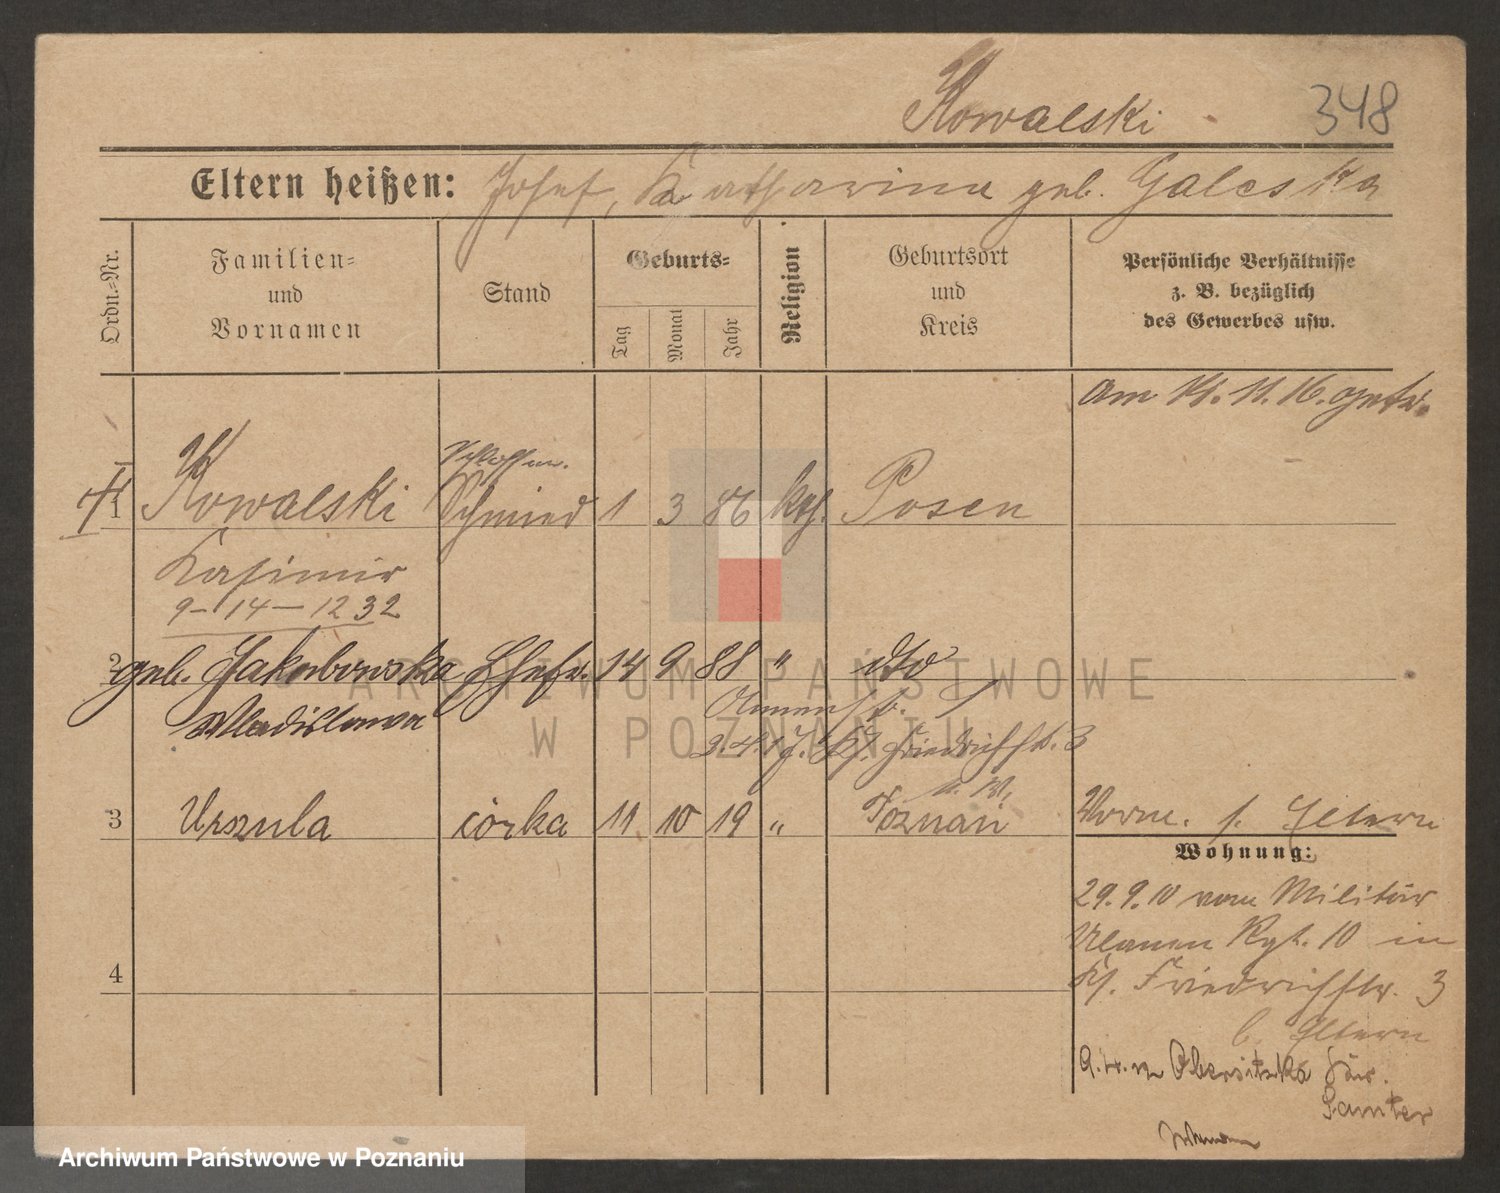 Kowalski
348
Eltern heißen: Josef, Katharina geb. Galeska
Ordn.-Nr.
Familien-
und
Vornamen
Stand
Geburts-
Tag
Monat
Jahr
Religion
Geburtsort
und
Kreis
Persönliche Verhältnisse
z. B. bezüglich
des Gewerbes usw.
am 11. 16.
1 Kowalski Schmied 1 3 86 kth. Posen
Kasimir
9-14-1232
2 geb. Jakubowska Ehefr. 14 9 88 " dto
Wladislawa
Friedrichstr. 3
3 Urszula córka 11 10 19 " Poznań
Vorm. s. Eltern
Wohnung:
29.9.10 vom Militär
Ulanen Rgt. 10 in
Friedrichstr. 3
b. Eltern
Obersitzko
Samter
4
ARCHIWUM PAŃSTWOWE
W POZNANIU
Archiwum Państwowe w Poznaniu